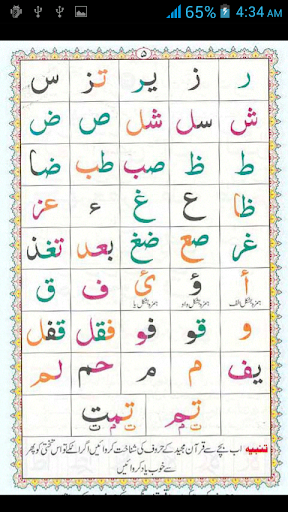 65% 4:34 AM
۵
ر ز یر تز س
ش سل شل ص ض
ط ظ صب طب ضا
ظا ع غ ء عز
غر صع ضغ بعد تغذ
أ ؤ ئ ف ق
ہمزہ بشکل الف ہمزہ بشکل واو ہمزہ بشکل یا
و قو فو فقل قفل
یف م م حم لم
تم تمت
تنبیہ اب بچے سے قرآن مجید کے حروف کی شناخت کروائیں اگر اٹکے تو اس تختی کو پھر
سے خوب یاد کروائیں